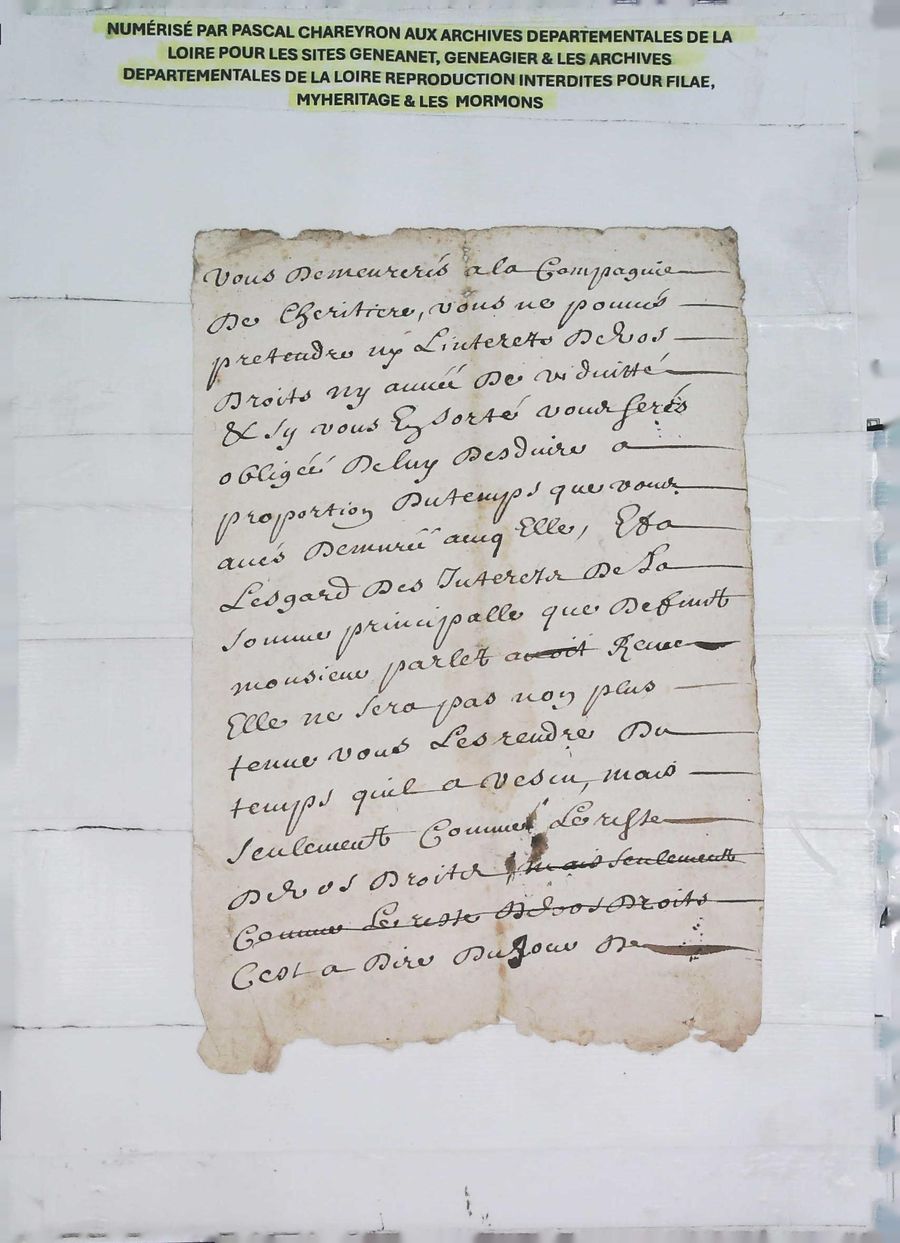 NUMÉRISÉ PAR PASCAL CHAREYRON AUX ARCHIVES DEPARTEMENTALES DE LA
LOIRE POUR LES SITES GENEANET, GENEAGIER & LES ARCHIVES
DEPARTEMENTALES DE LA LOIRE REPRODUCTION INTERDITES POUR FILAE,
MYHERITAGE & LES MORMONS
Vous Demeurerés a la Compagnie
De Lheritiere, vous ne pouués
pretendre ny Linterets De vos
Droits ny année De viduitté
& sy vous En sorté vous serés
obligéé De luy Desduire a
proportion Du temps que vous
aués Demuréé aueq Elle, Et a
Lesgard Des Interets De La
somme principalle que Deffunt
monsieur parlet avoit Reçue
Elle ne sera pas non plus
tenue vous Les rendre Du
temps quil a vescu, mais
seulement Comme Le reste
De vos Droits mais seulement
Comme Le reste De vos Droits
Cest a Dire Du Jour De